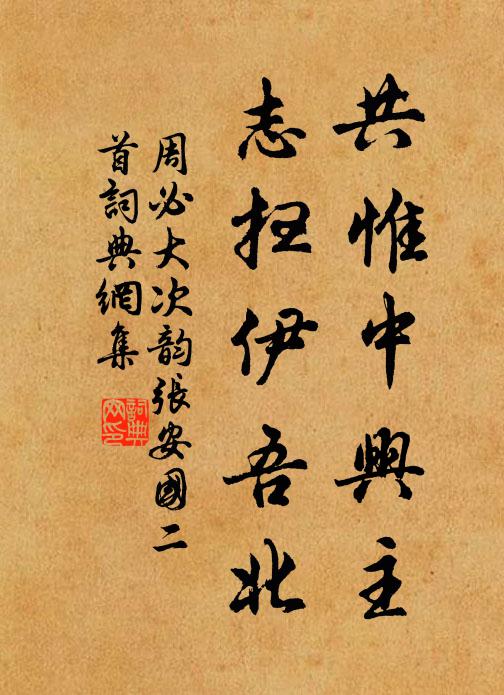 共惟中興主
志扫伊吾北
周必大次韵張安國二
首詞典網集
詞典网印